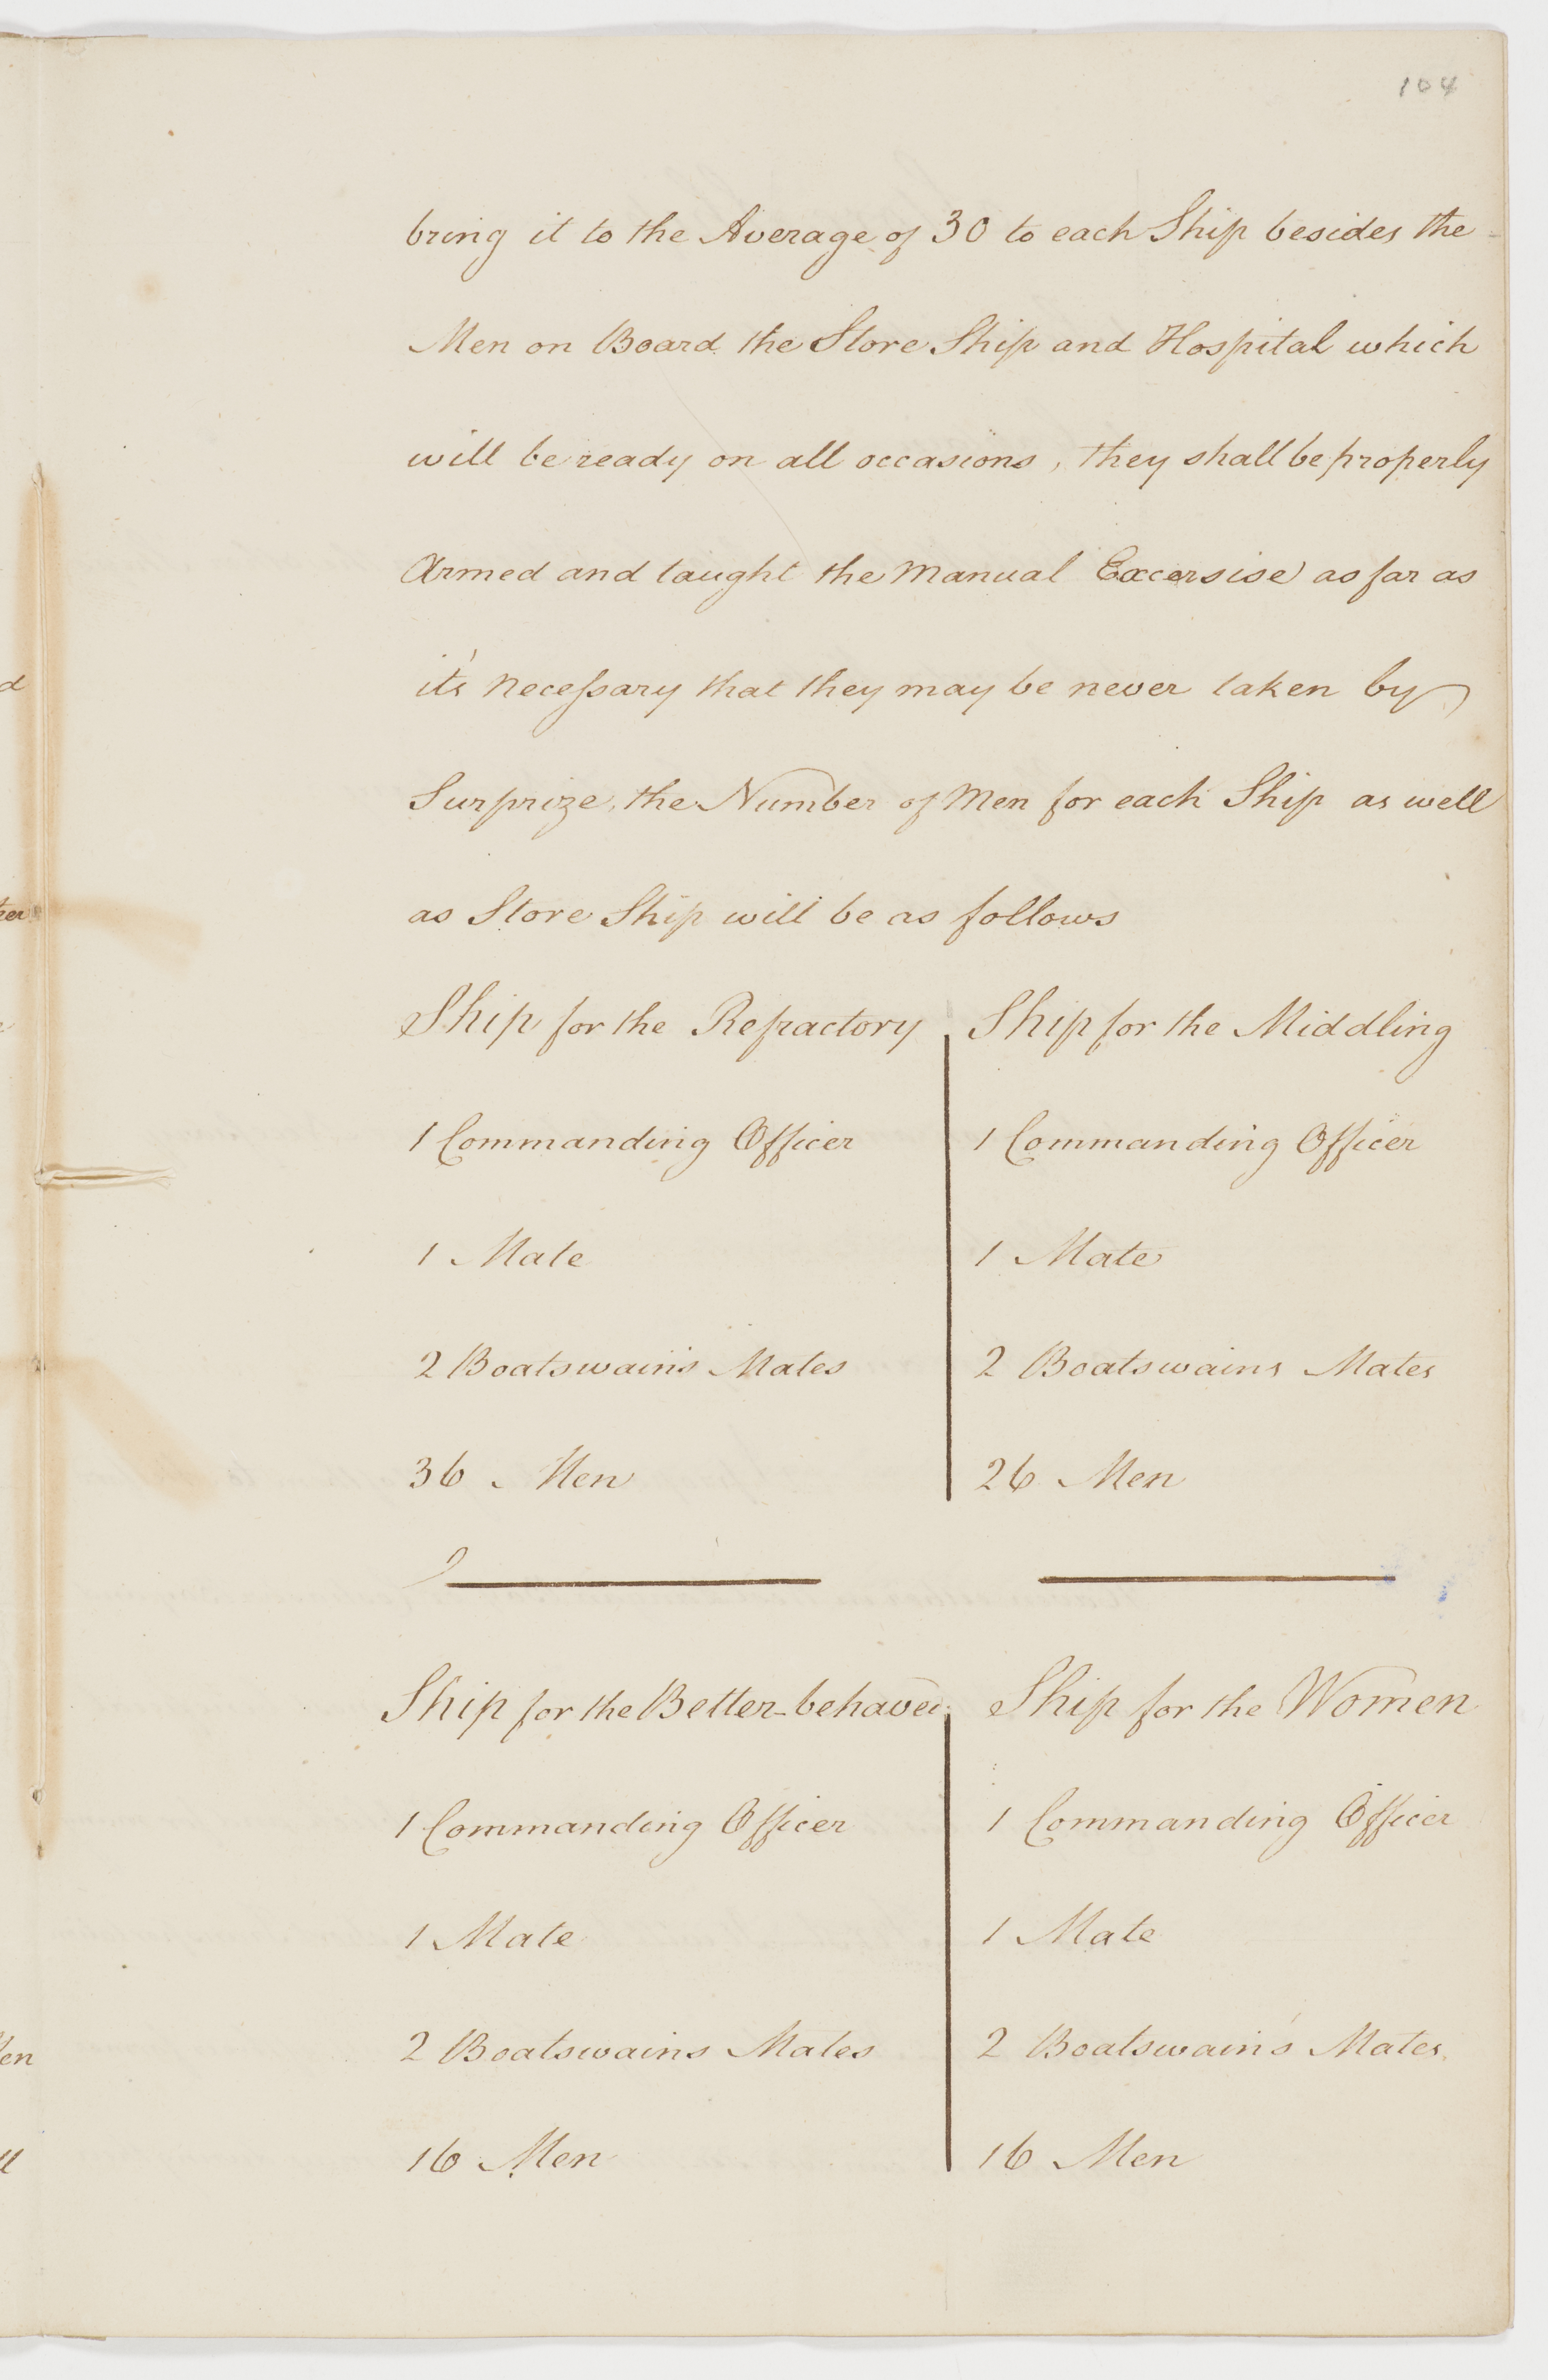 104
bring it to the Average of 30 to each Ship besides the
Men on Board the Store Ship and Hospital which
will be ready on all occasions, they shall be properly
Armed and taught the Manual Excersise as far as
it's necessary that they may be never taken by
Surprize, the Number of Men for each Ship as well
as Store Ship will be as follows
Ship for the Refractory
1 Commanding Officer
1 Mate
2 Boatswain's Mates
36 Men
Ship for the Middling
1 Commanding Officer
1 Mate
2 Boatswains Mates
26 Men
Ship for the Better-behaved
1 Commanding Officer
1 Mate
2 Boatswains Mates
16 Men
Ship for the Women
1 Commanding Officer
1 Mate
2 Boatswain's Mates
16 Men